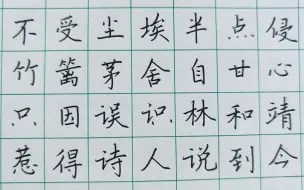 不受尘埃半点侵
竹篱茅舍自甘心
只因误识林和靖
惹得诗人说到今